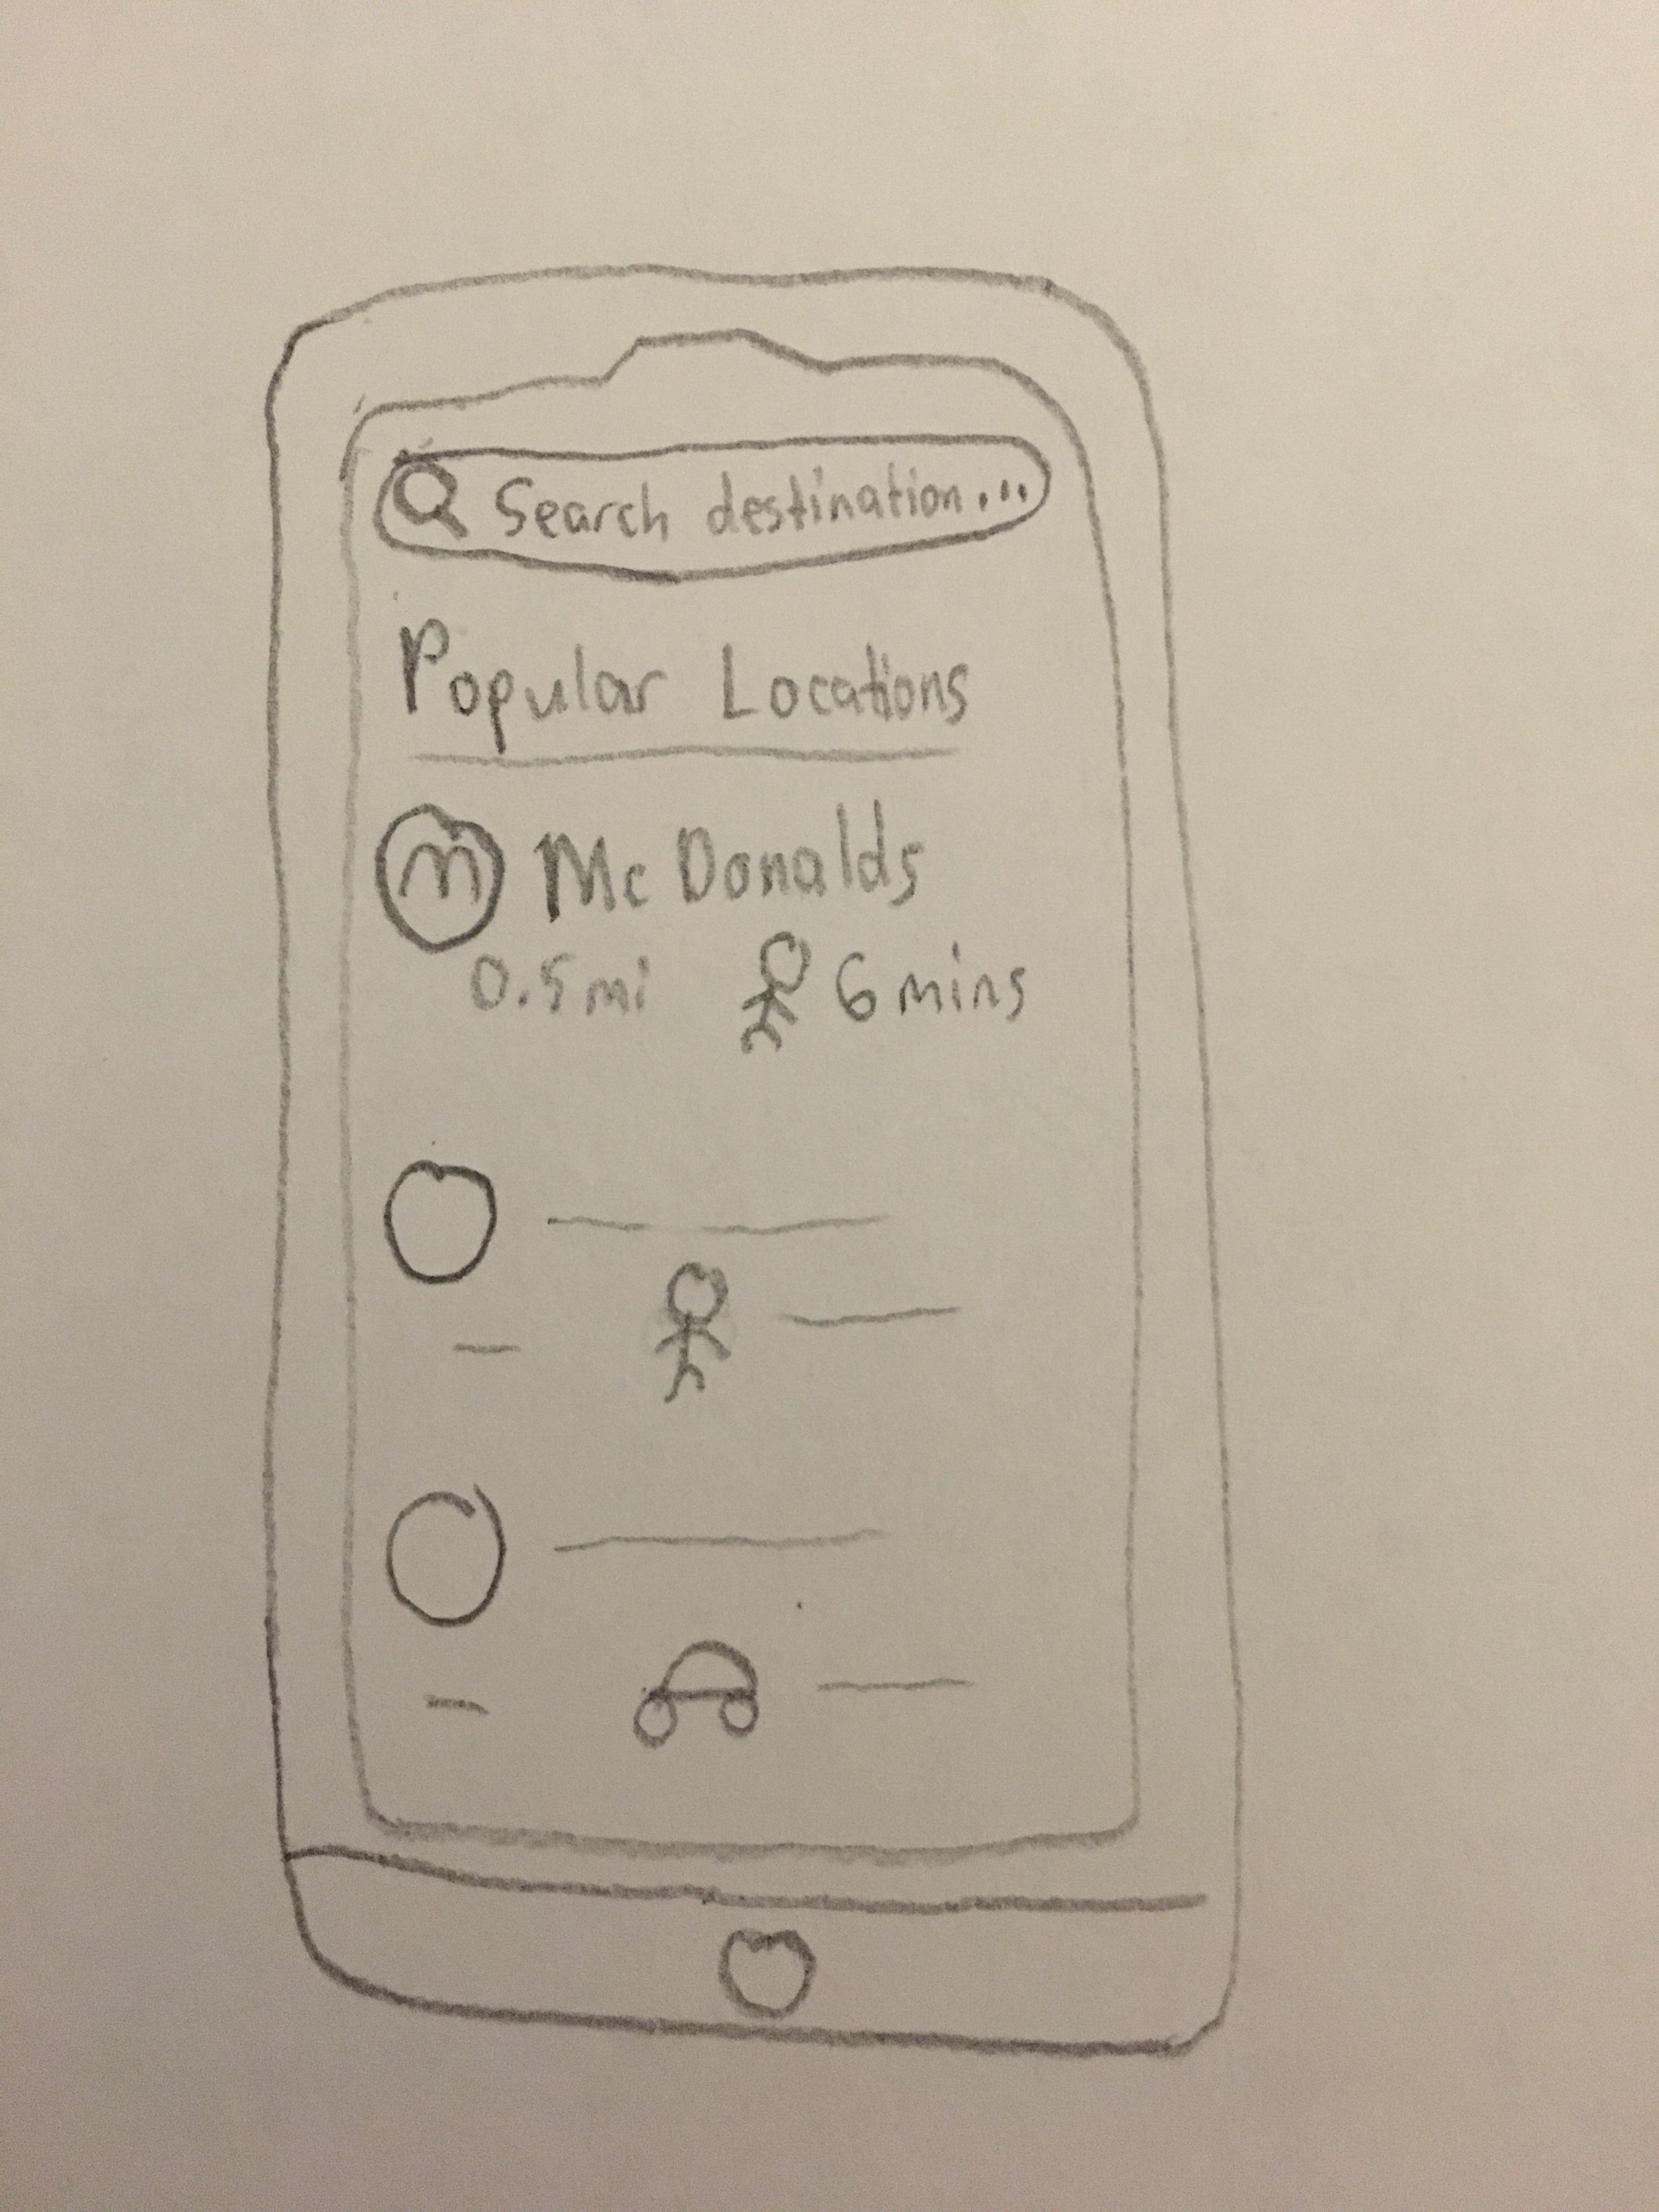 Search destination...
Popular Locations
m McDonalds
0.5mi 6 mins